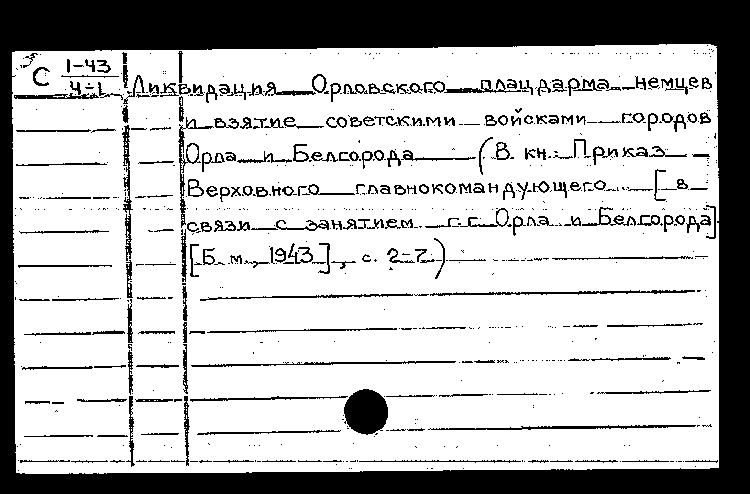 С 1-43
4-1
Ликвидация Орловского плацдарма немцев
и взятие советскими войсками городов
Орла и Белгорода (В кн.: Приказ
Верховного главнокомандующего [в
связи с занятием г.г. Орла и Белгорода]
[Б. м., 1943], с. 2-7.)